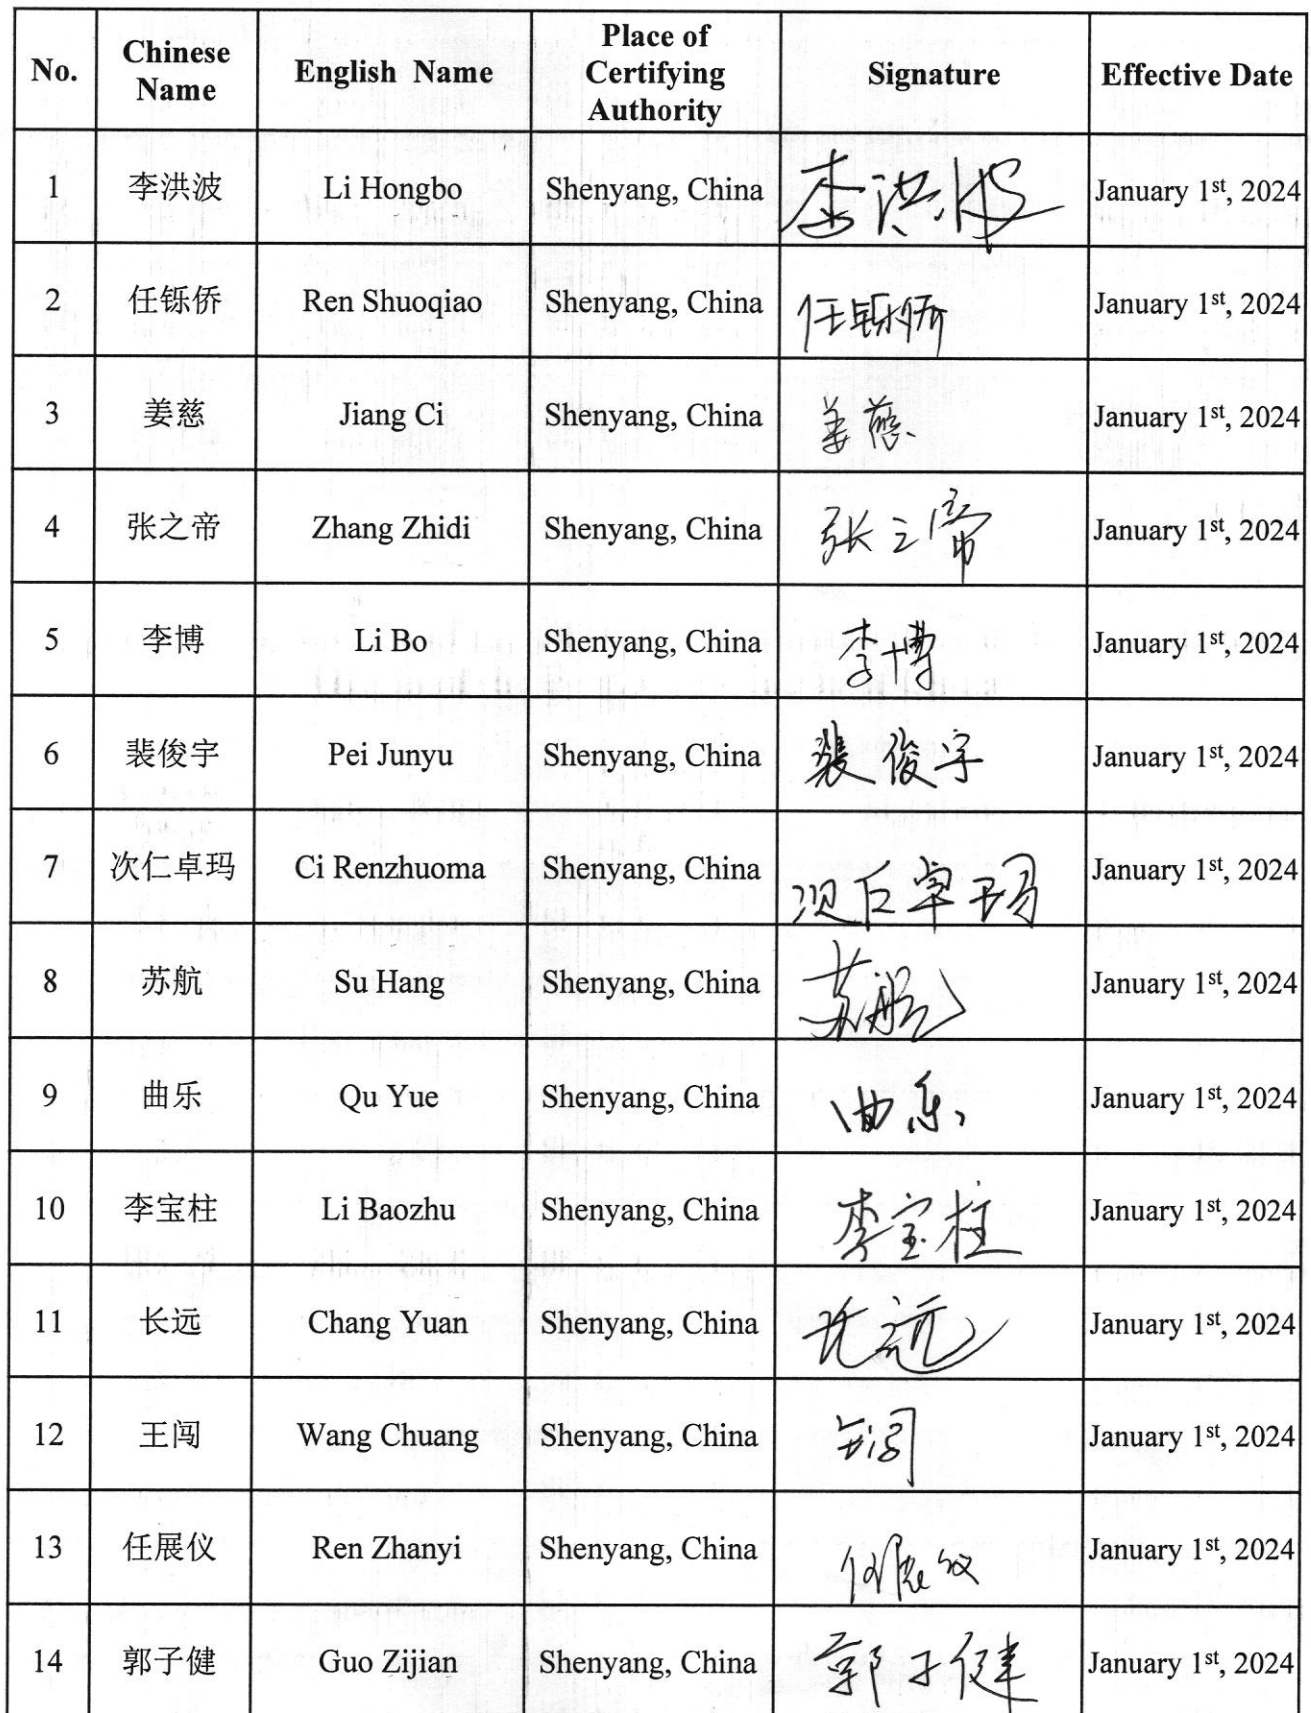 No. Chinese Name English Name Place of Certifying Authority Signature Effective Date
1 李洪波 Li Hongbo Shenyang, China 李洪波 January 1st, 2024
2 任铄侨 Ren Shuoqiao Shenyang, China 任铄侨 January 1st, 2024
3 姜慈 Jiang Ci Shenyang, China 姜慈 January 1st, 2024
4 张之帝 Zhang Zhidi Shenyang, China 张之帝 January 1st, 2024
5 李博 Li Bo Shenyang, China 李博 January 1st, 2024
6 裴俊宇 Pei Junyu Shenyang, China 裴俊宇 January 1st, 2024
7 次仁卓玛 Ci Renzhuoma Shenyang, China 次仁卓玛 January 1st, 2024
8 苏航 Su Hang Shenyang, China 苏航 January 1st, 2024
9 曲乐 Qu Yue Shenyang, China 曲乐 January 1st, 2024
10 李宝柱 Li Baozhu Shenyang, China 李宝柱 January 1st, 2024
11 长远 Chang Yuan Shenyang, China 长远 January 1st, 2024
12 王闯 Wang Chuang Shenyang, China 王闯 January 1st, 2024
13 任展仪 Ren Zhanyi Shenyang, China 任展仪 January 1st, 2024
14 郭子健 Guo Zijian Shenyang, China 郭子健 January 1st, 2024